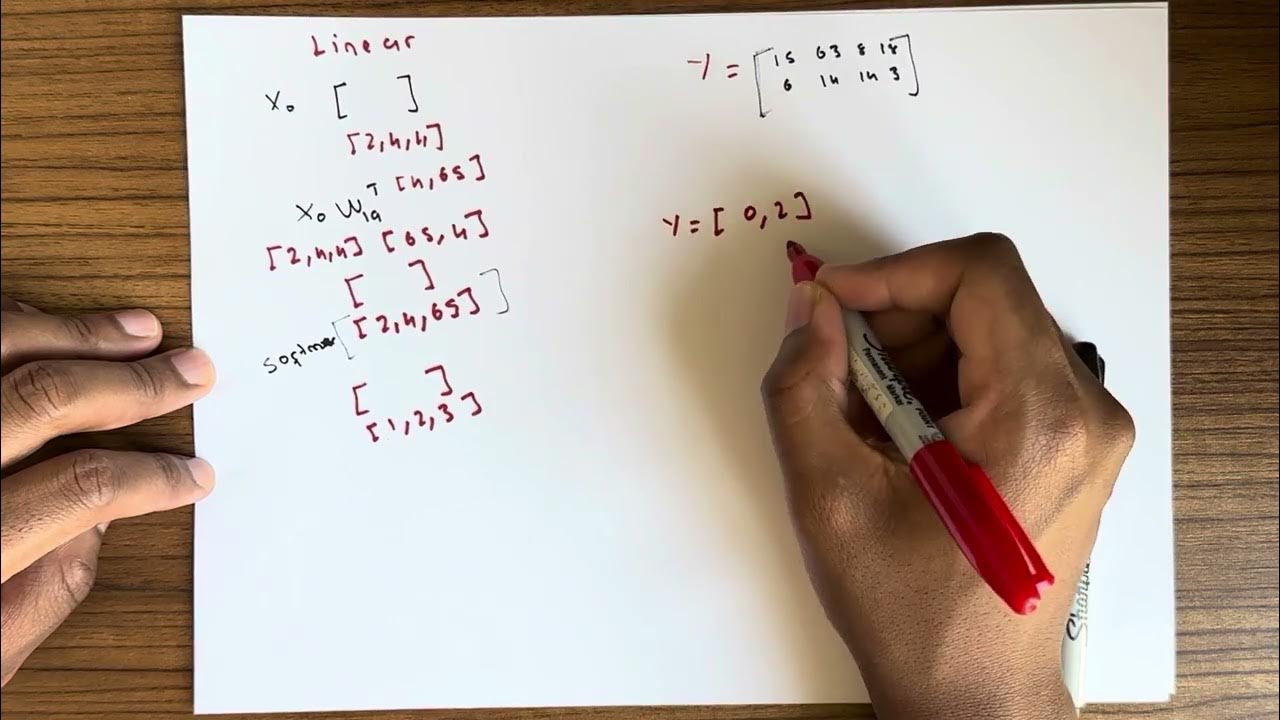 Linear
X₀ [ ]
[2,4,4]
X₀ W₁₉ᵀ [4,65]
[2,4,4] [65,4]
[ ]
softmax [[2,4,65]]
[ ]
[1,2,3]
Y = [15 63 8 18
6 14 14 3]
Y = [0,2]
Sharpie